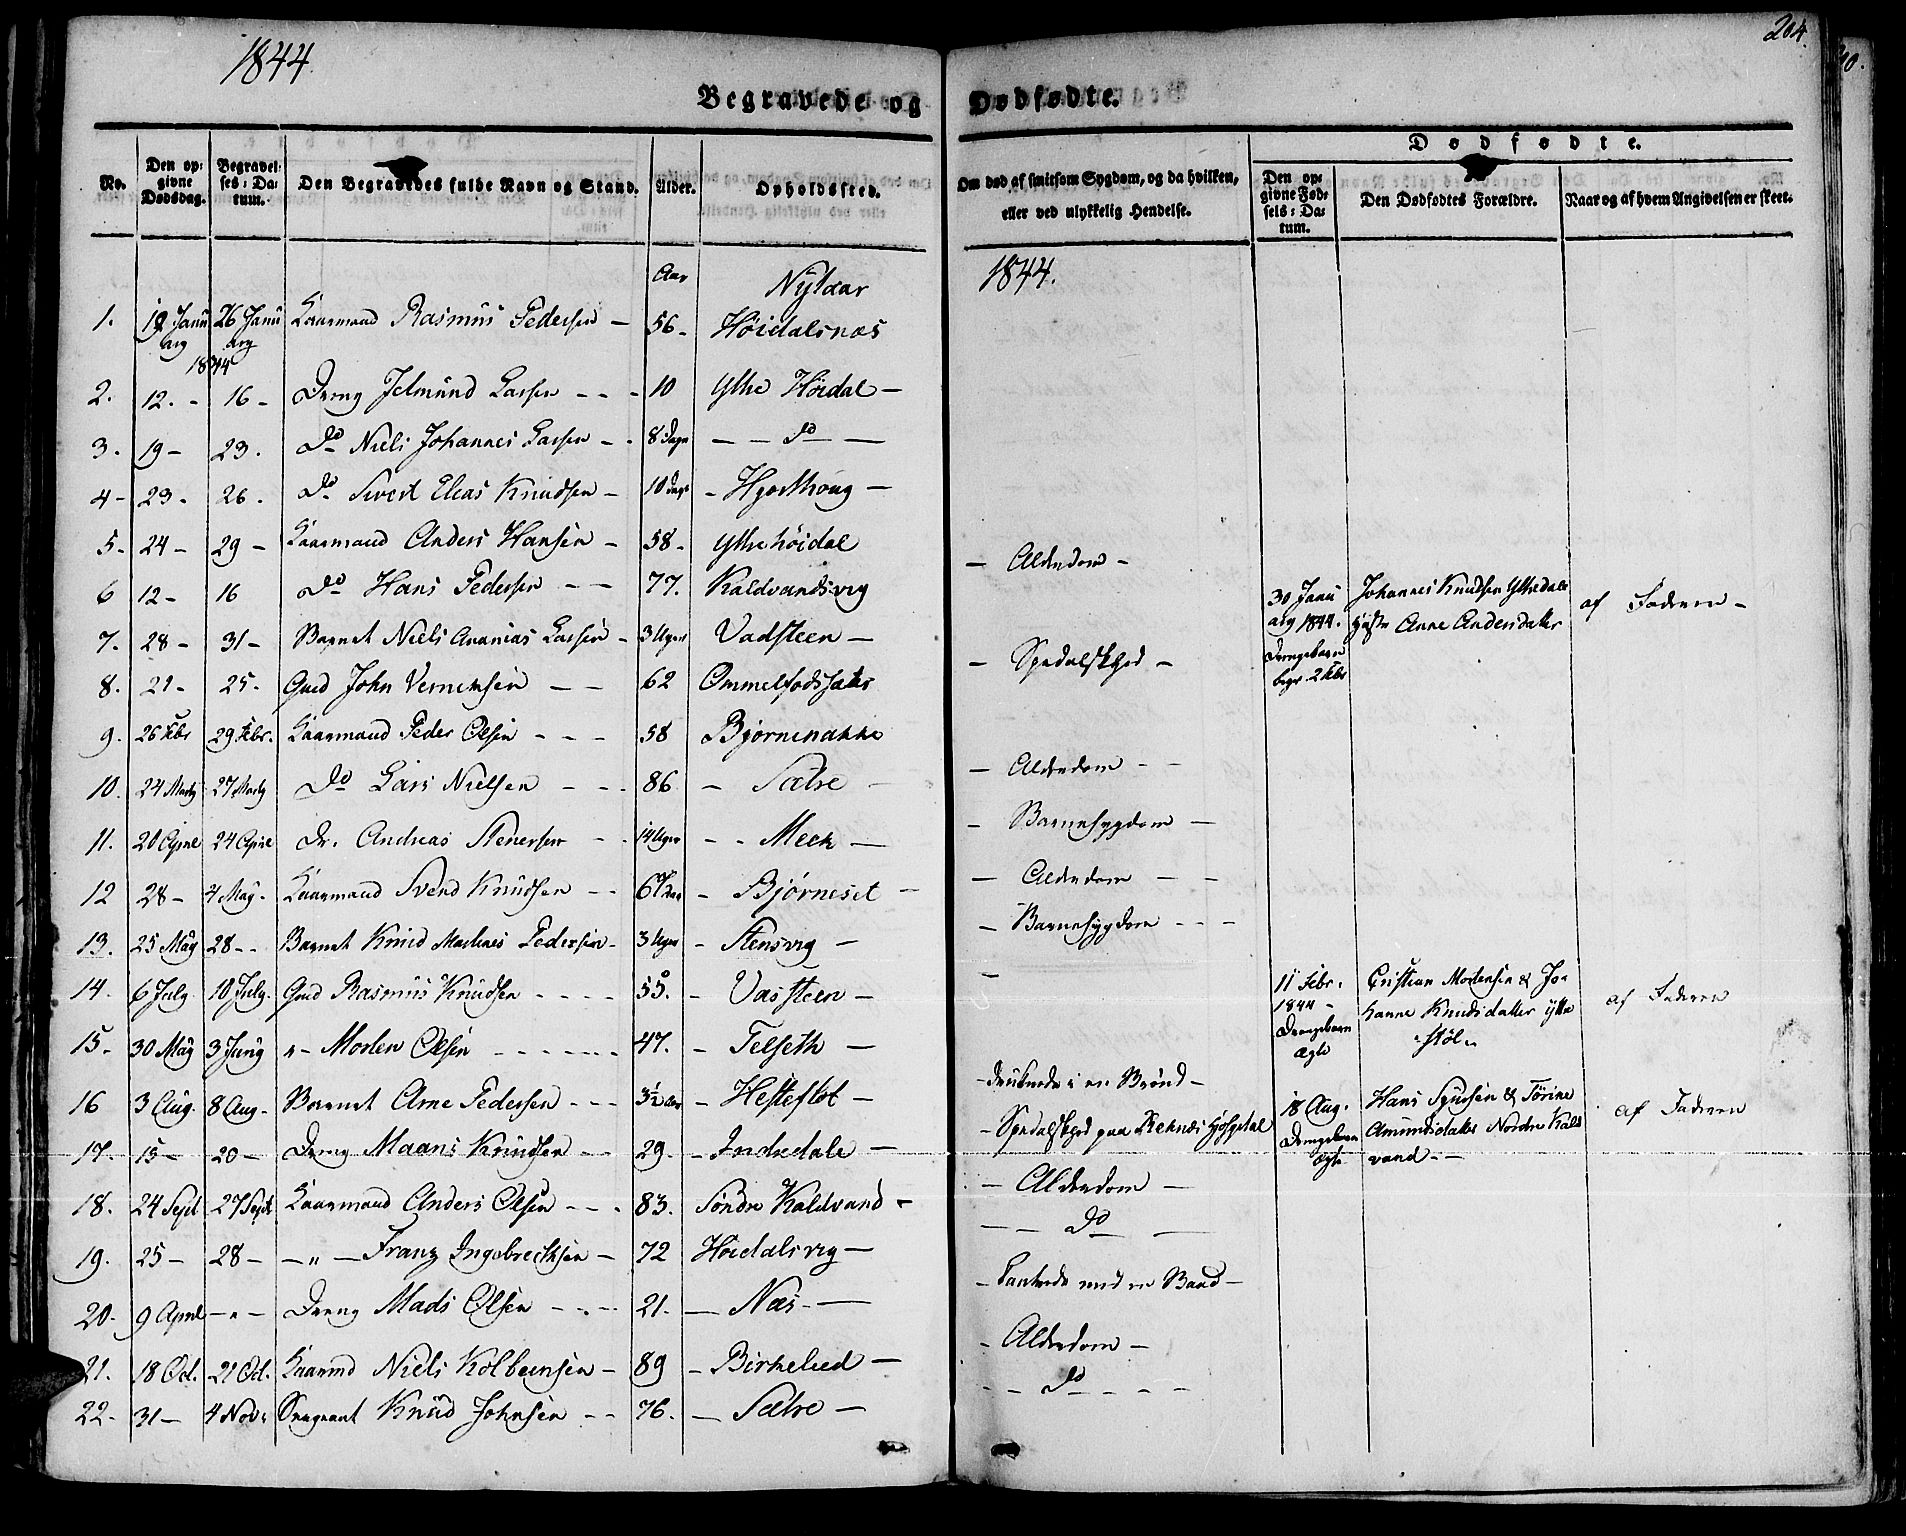 1844.
204.
Begravede og Dødfødte.
No.
Den opgivne Dødsdag.
Begravelses-Datum.
Den Begravedes fulde Navn og Stand.
Alder.
Opholdssted.
Om død af smitsom Sygdom, og da hvilken, eller ved ulykkelig Hendelse.
Dødfødte.
Den opgivne Fødsels-Datum.
Den Dødfødtes Forældre.
Naar og af hvem Angivelsen er skeet.
1844.
Aar
1. 19 Januarg 1844 26 Januarg Kaarmand Rasmus Pedersen - 56 - Høidalsnæs
2. 12. - 16 - Dreng Jelmund Larsen - - - 10 Ytre Høidal -
3. 19 - 23. Do Niels Johannes Larsen - - 8 Dage - - Do -
4 - 23 - 26. Do Sivert Elias Knudsen - 10 Dage - Hjorthoug -
5 - 24 - 29 - Kaarmand Anders Hansen - 58 - Ytrehøidal
6 12 - 16 Do Hans Pedersen - - 77. Kaldvandsvig - Alderdom -
7. 28 - 31 - Barnet Niels Ananias Larsen - 3 Uger Vadsteen -
8. 21 - 25. Gmd John - - 62 - Spedalskhed -
9. 26 Febr 29 Febr. Kaarmand Peder Olsen - - - 58 Bjørnenakke
10. 24 Marty 27 Marty Do Lars Nielsen - - - 86 - Sætre - - Alderdom - -
11. 20 April 24 April Dr. Andreas Stenersen - - 14 Uger - - Meek - - Barnesygdom -
12 28 - 4 May - Kaarmand Svend Knudsen - - 67 Aar - Bjørneset - - Alderdom - -
13. 25 May 28 - - Barnet Knud Martines Pedersen - 3 Uger - Stensvig - - Barnesygdom - - -
14. 6 July 10 July. Gmd Rasmus Knudsen - - - - 55. - Vassteen - -
15 - 30 May 3 Juny " - Morten Olsen - - - - - - 47. - Telseth -
16 3 Aug. 8 Aug - Barnet Arne Pedersen - - - 3½ Aar - Hesteflot - - druknede i en Brønd -
17. 15 - 20 - Dreng Maans Knudsen - - 29. - Indredale - - Spedalskhed paa Reknæs Hospital
18. 24 Sept 27 Sept Kaarmand Anders Olsen - - - 83. Søndre Kaldvand - - Alderdom -
19. 25 - 28 - - " - Franz Ingebrecktsen - 72 Høidalsvig - - - Do -
20 - 9 April - " - Dreng Mads Olsen - - - - 21. - Næs - - - med en Baad -
21. 18 Oct. 21 Oct. Kaarmd Niels Kolbeensen - 89 - Birkelied - - Alderdom -
22 - 31 - 4 Nov: Sergeant Knud Johnsen - - 76. - Sætre - - - Do - - - -
30 Januarg 1844. Drengebarn begr. 2 Febr
Johannes Knudsen Ytredale
Hustr Anne Andersdatter
af Faderen -
11 Febr. 1844 - Drengebarn Ægte
Cristian Mortensen & Johanne Knudsdatter Ytre støl
af Faderen
18 Aug. Drengebarn Ægte
Hans Syversen & Tørine Amundsdatter Nordre Kaldvand - -
af Faderen